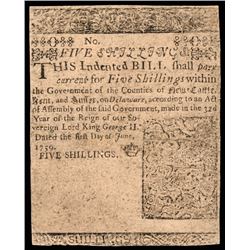 No.
FIVE SHILLING
THIS Indented BILL shall pass
current for Five Shillings within
the Government of the Counties of New-Castle,
Kent, and Sussex, on Delaware, according to an Act
of Assembly of the said Government, made in the 32d
Year of the Reign of our So-
vereign Lord King George II.
Dated the first Day of June,
1759.
FIVE SHILLINGS.